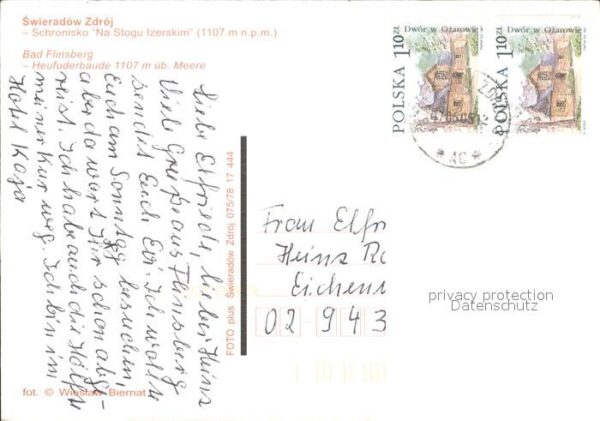 Świeradów Zdrój
– Schronisko "Na Stogu Izerskim" (1107 m n.p.m.)
Bad Flinsberg
– Heufuderbaude 1107 m üb. Meere
Liebe Elfriede, lieber Heinz
Viele Grüße aus Flinsberg
sendet Euch Evi. Ich wollte
Euch am Sonntag besuchen,
aber da wart Ihr schon abge-
reist. Ich habe auch die Hälfte
meiner Kur weg. Ich bin im
Hotel Kaja
fot. © Wiesław Biernat
FOTO plus Świeradów Zdrój 075/78 17 444
Dwór w Ożarowie
POLSKA 1,10 ZŁ
Dwór w Ożarowie
POLSKA 1,10 ZŁ
* AC *
Frau Elfr
Heinz Ro
Eichen
02943
privacy protection
Datenschutz